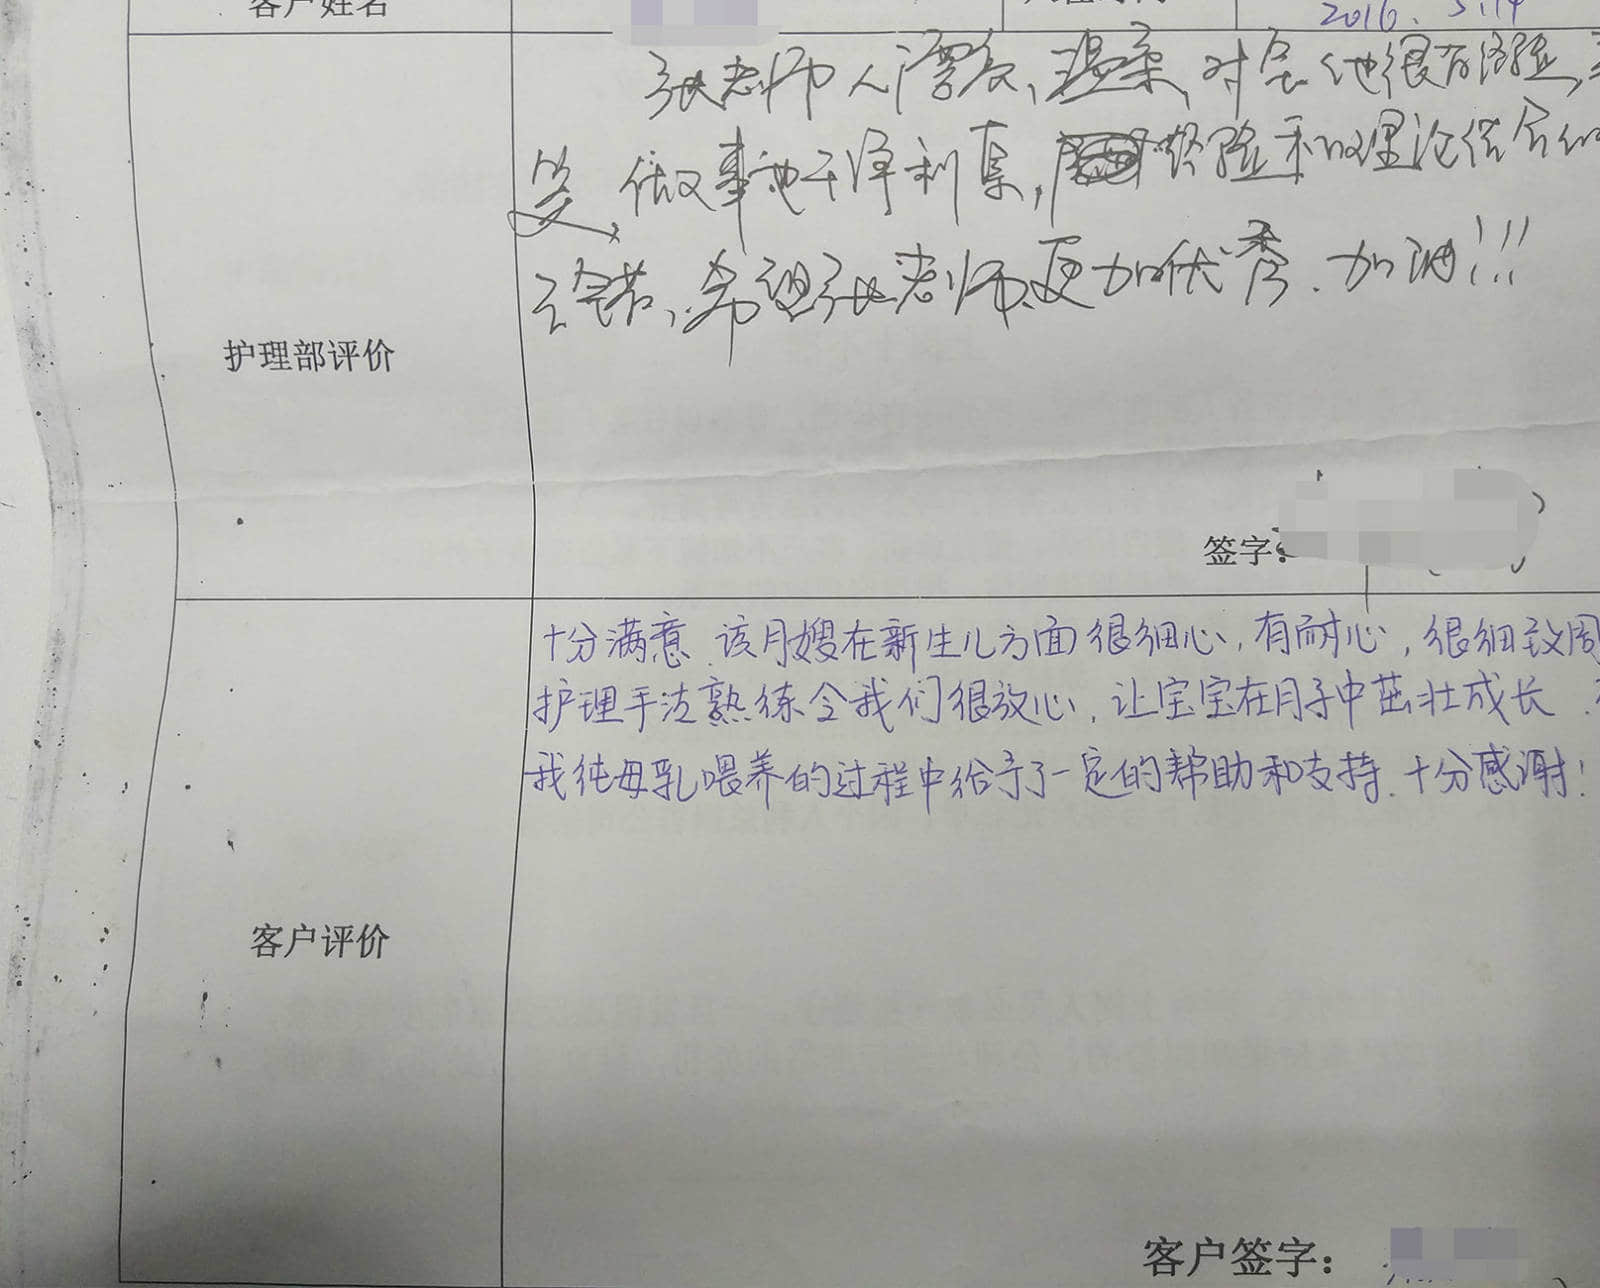 客户姓名
2016. 5.14
张老师人漂亮、温柔,对宝他很有经验,
笑,做事也干净利索,经验和理论结合的
不错,希望张老师更加优秀.加油!!!
护理部评价
签字:
十分满意.该月嫂在新生儿方面很细心,有耐心,很细致周
护理手法熟练令我们很放心,让宝宝在月子中茁壮成长.
我纯母乳喂养的过程中给予了一定的帮助和支持.十分感谢!
客户评价
客户签字: